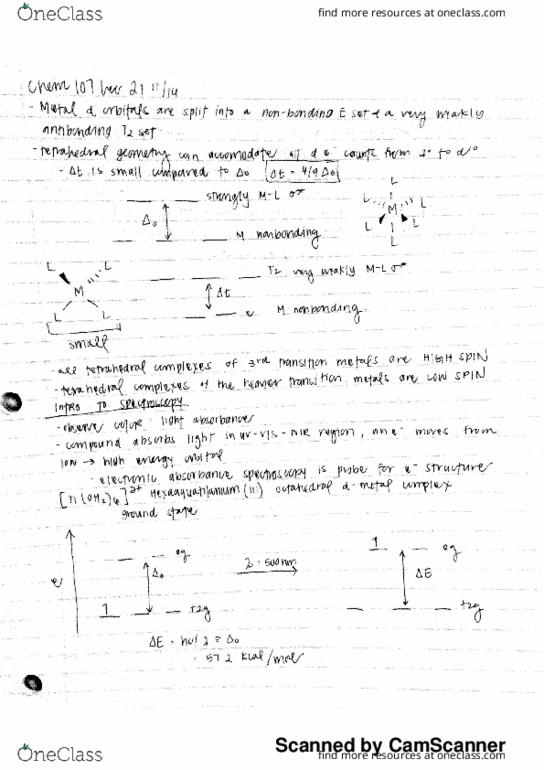 OneClass
find more resources at oneclass.com
Chem 107 Lec 21 11/14
- Metal d orbitals are split into a non-bonding E set & a very weakly
antibonding T2 set.
- tetrahedral geometry can accomodate all d e⁻ counts from d⁰ to d¹⁰
- Δt is small compared to Δo [Δt = 4/9 Δo]
strongly M-L σ*
Δo
M nonbonding
L
L
L
M
L
L
L
T2 very weakly M-L σ*
Δt
e M nonbonding.
L
L
M
L
L
small
- all tetrahedral complexes of 3rd transition metals are HIGH SPIN
- tetrahedral complexes of the heavier transition metals are LOW SPIN
INTRO TO SPECTROSCOPY
- observe color: light absorbance
- compound absorbs light in uv-vis-NIR region, an e⁻ moves from
low → high energy orbital
- electronic absorbance spectroscopy is probe for e⁻ structure
[Ti(OH2)6]³⁺ Hexaaquatitanium(III) octahedral d-metal complex
ground state
e
eg
Δo
1
T2g
λ = 500nm
1
eg
ΔE
t2g
57.2 kcal/mol
Scanned by CamScanner
OneClass
find more resources at oneclass.com